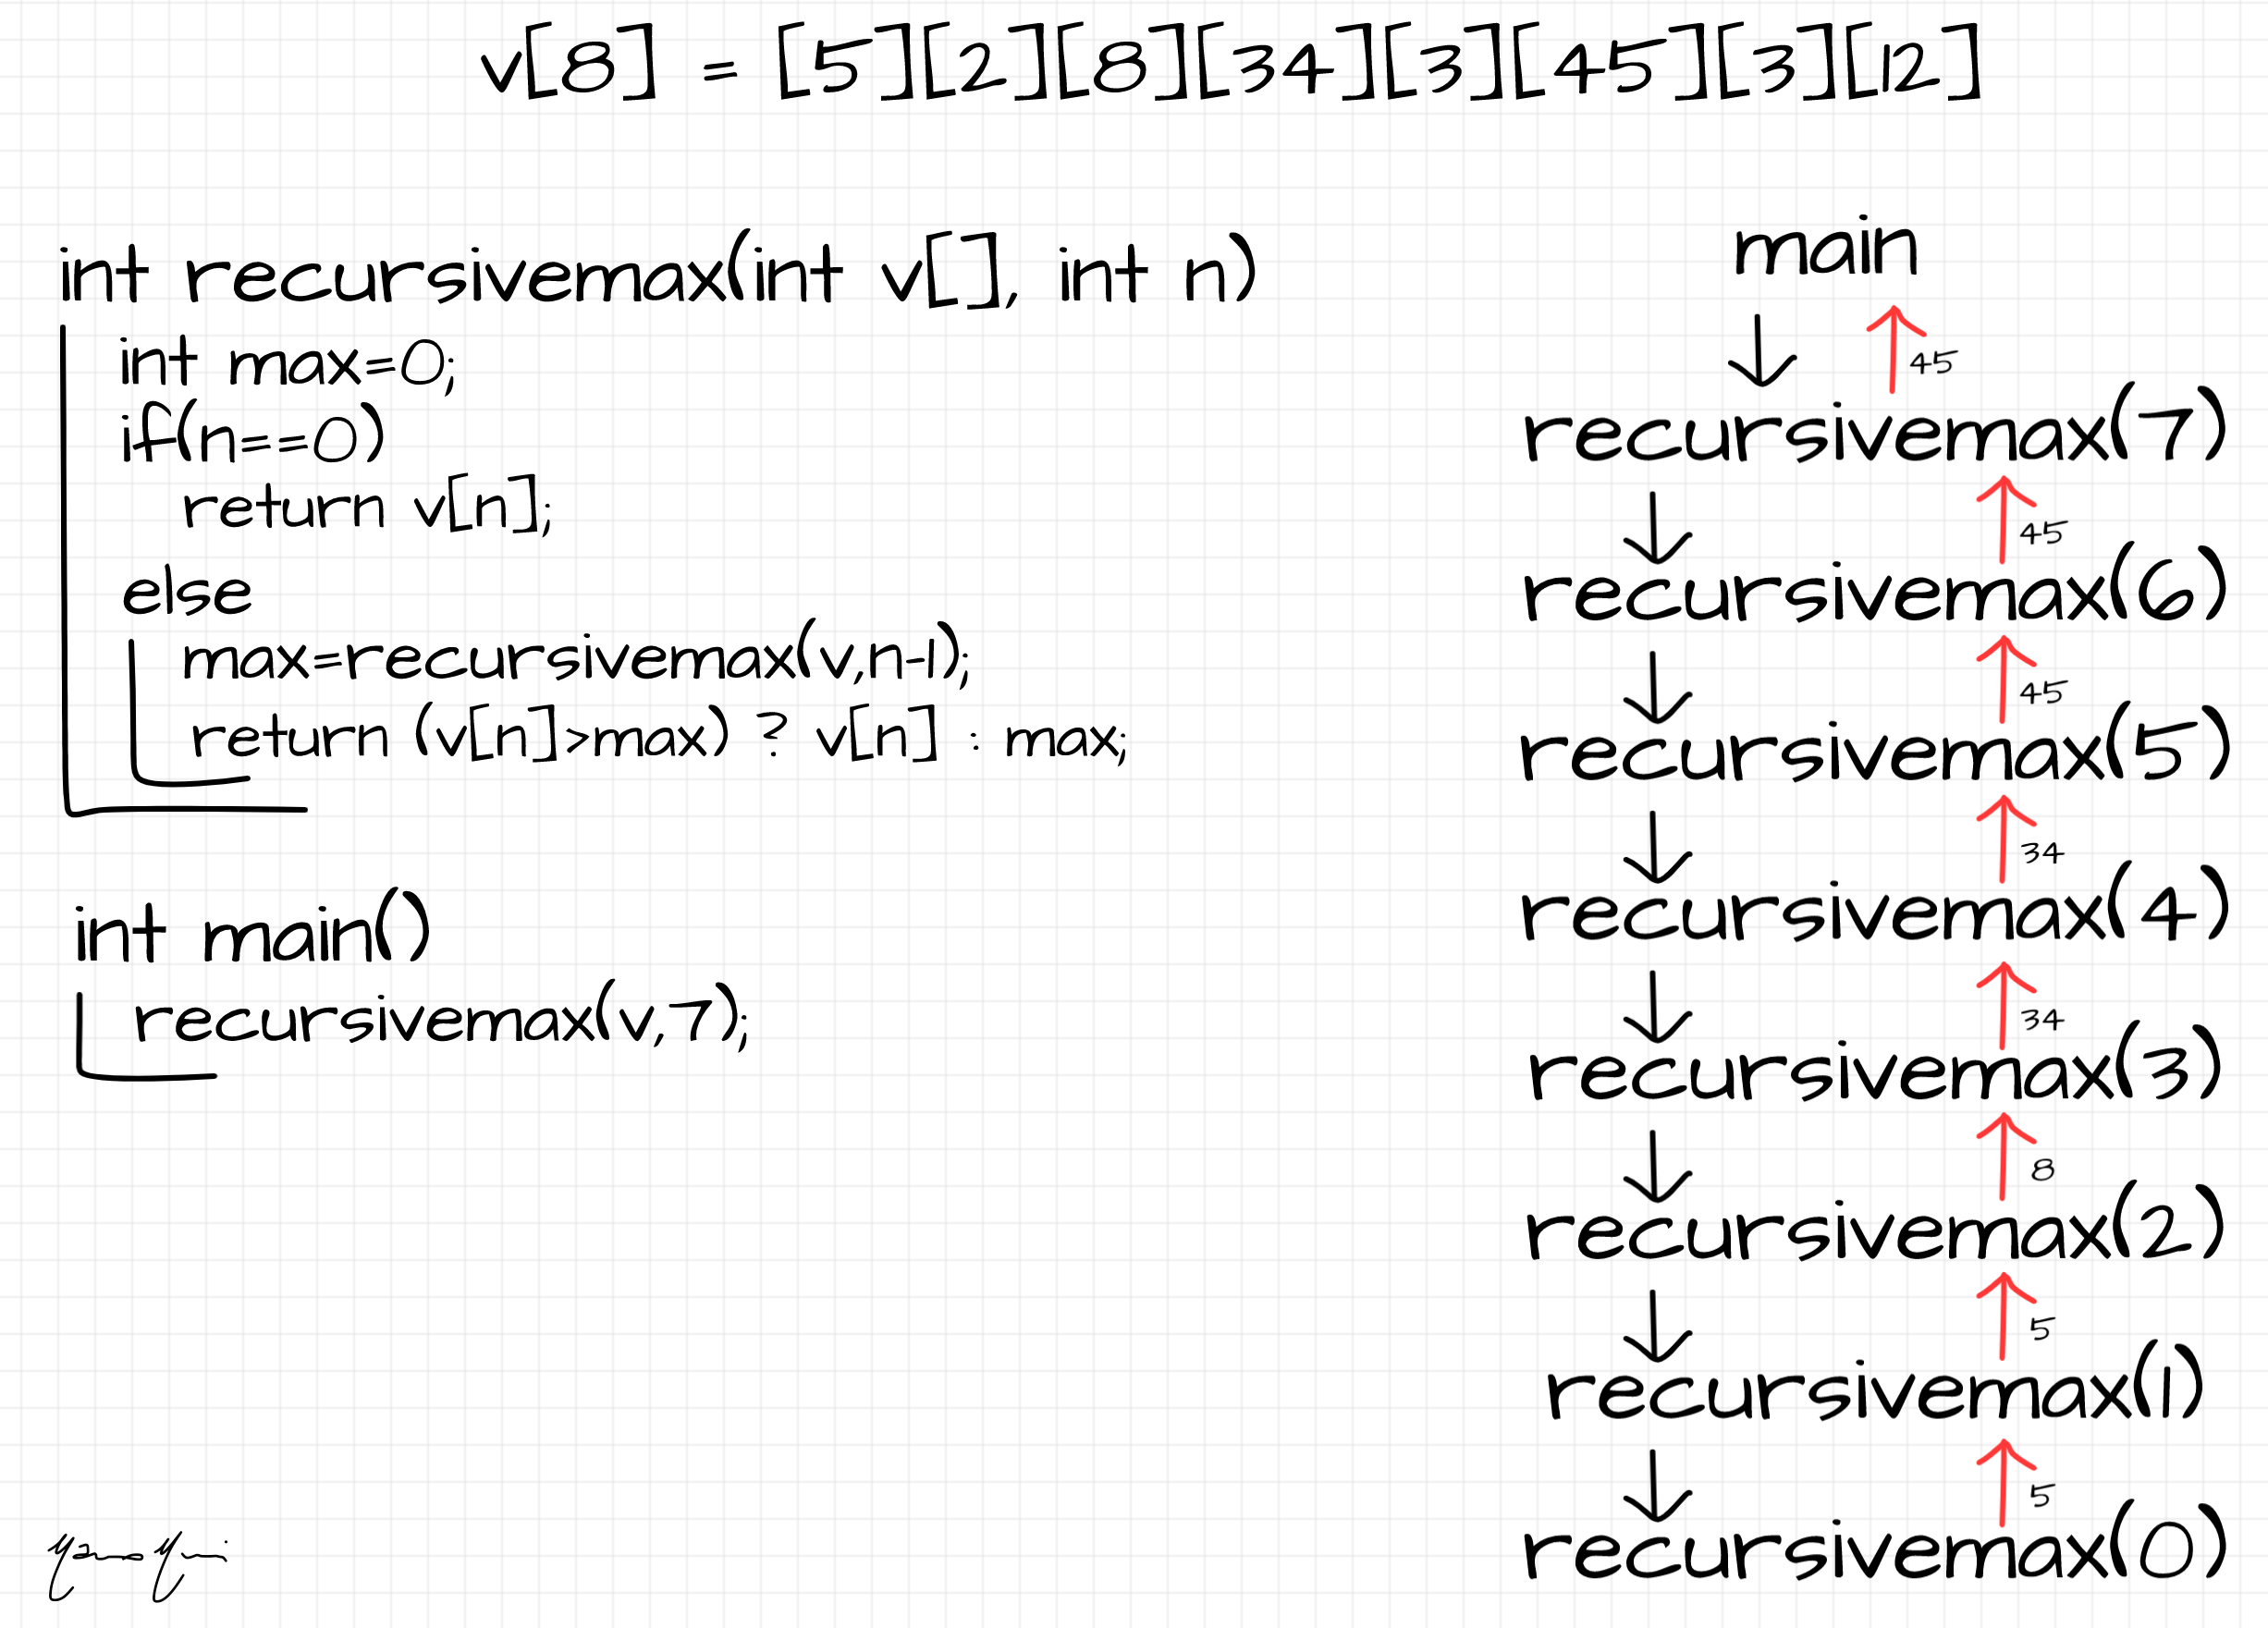 v[8] = [5][2][8][34][3][45][3][12]
int recursivemax(int v[], int n)
int max=0;
if(n==0)
return v[n];
else
max=recursivemax(v,n-1);
return (v[n]>max) ? v[n] : max;
int main()
recursivemax(v,7);
main
45
recursivemax(7)
45
recursivemax(6)
45
recursivemax(5)
34
recursivemax(4)
34
recursivemax(3)
8
recursivemax(2)
5
recursivemax(1)
5
recursivemax(0)